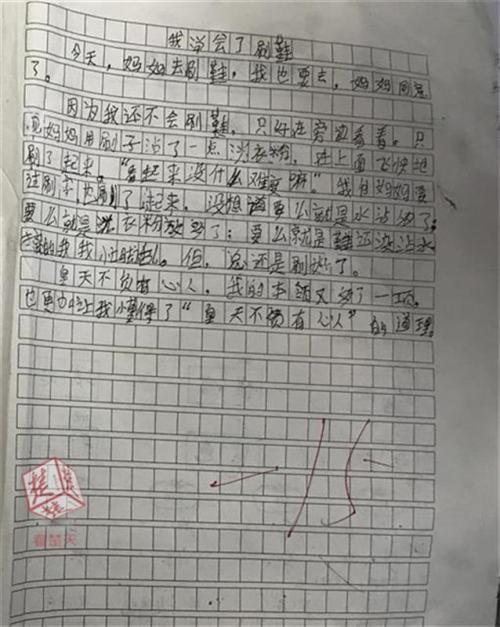 我学会了刷鞋
今天，妈妈去刷鞋，我也要去，妈妈同意
了。
因为我还不会刷鞋，只好在旁边看看。只
见妈妈用刷子沾了一点洗衣粉，在上面飞快地
刷了起来。“看起来没什么难度嘛。”我自妈妈要
过刷子，也刷了起来，没想道要么就是水沾多了；
要么就是洗衣粉放多了；要么就是鞋还没沾水
的我。但，总还是刷好了。
皇天不负有心人，我的本领又多了一项。
也更加让我懂得了“皇天不负有心人”的道理。
楚
看楚天